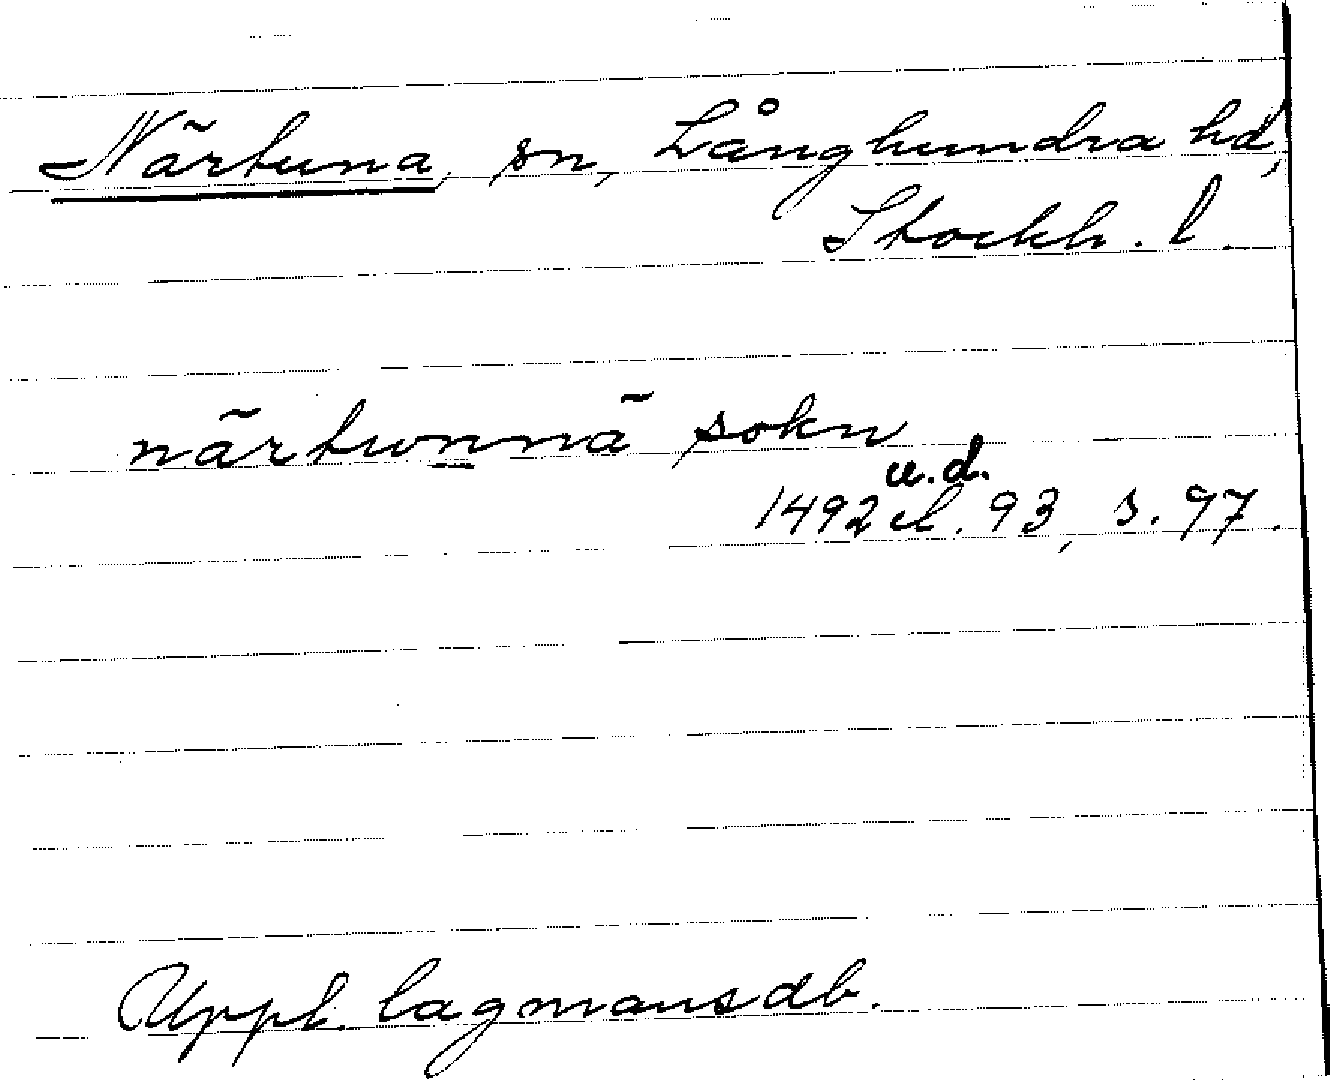 Närtuna, sn, Långhundra hd,
Stockh. l.
närtunnä sokn
u.d.
1492 . 93, s. 97.
Uppl. lagmansdb.